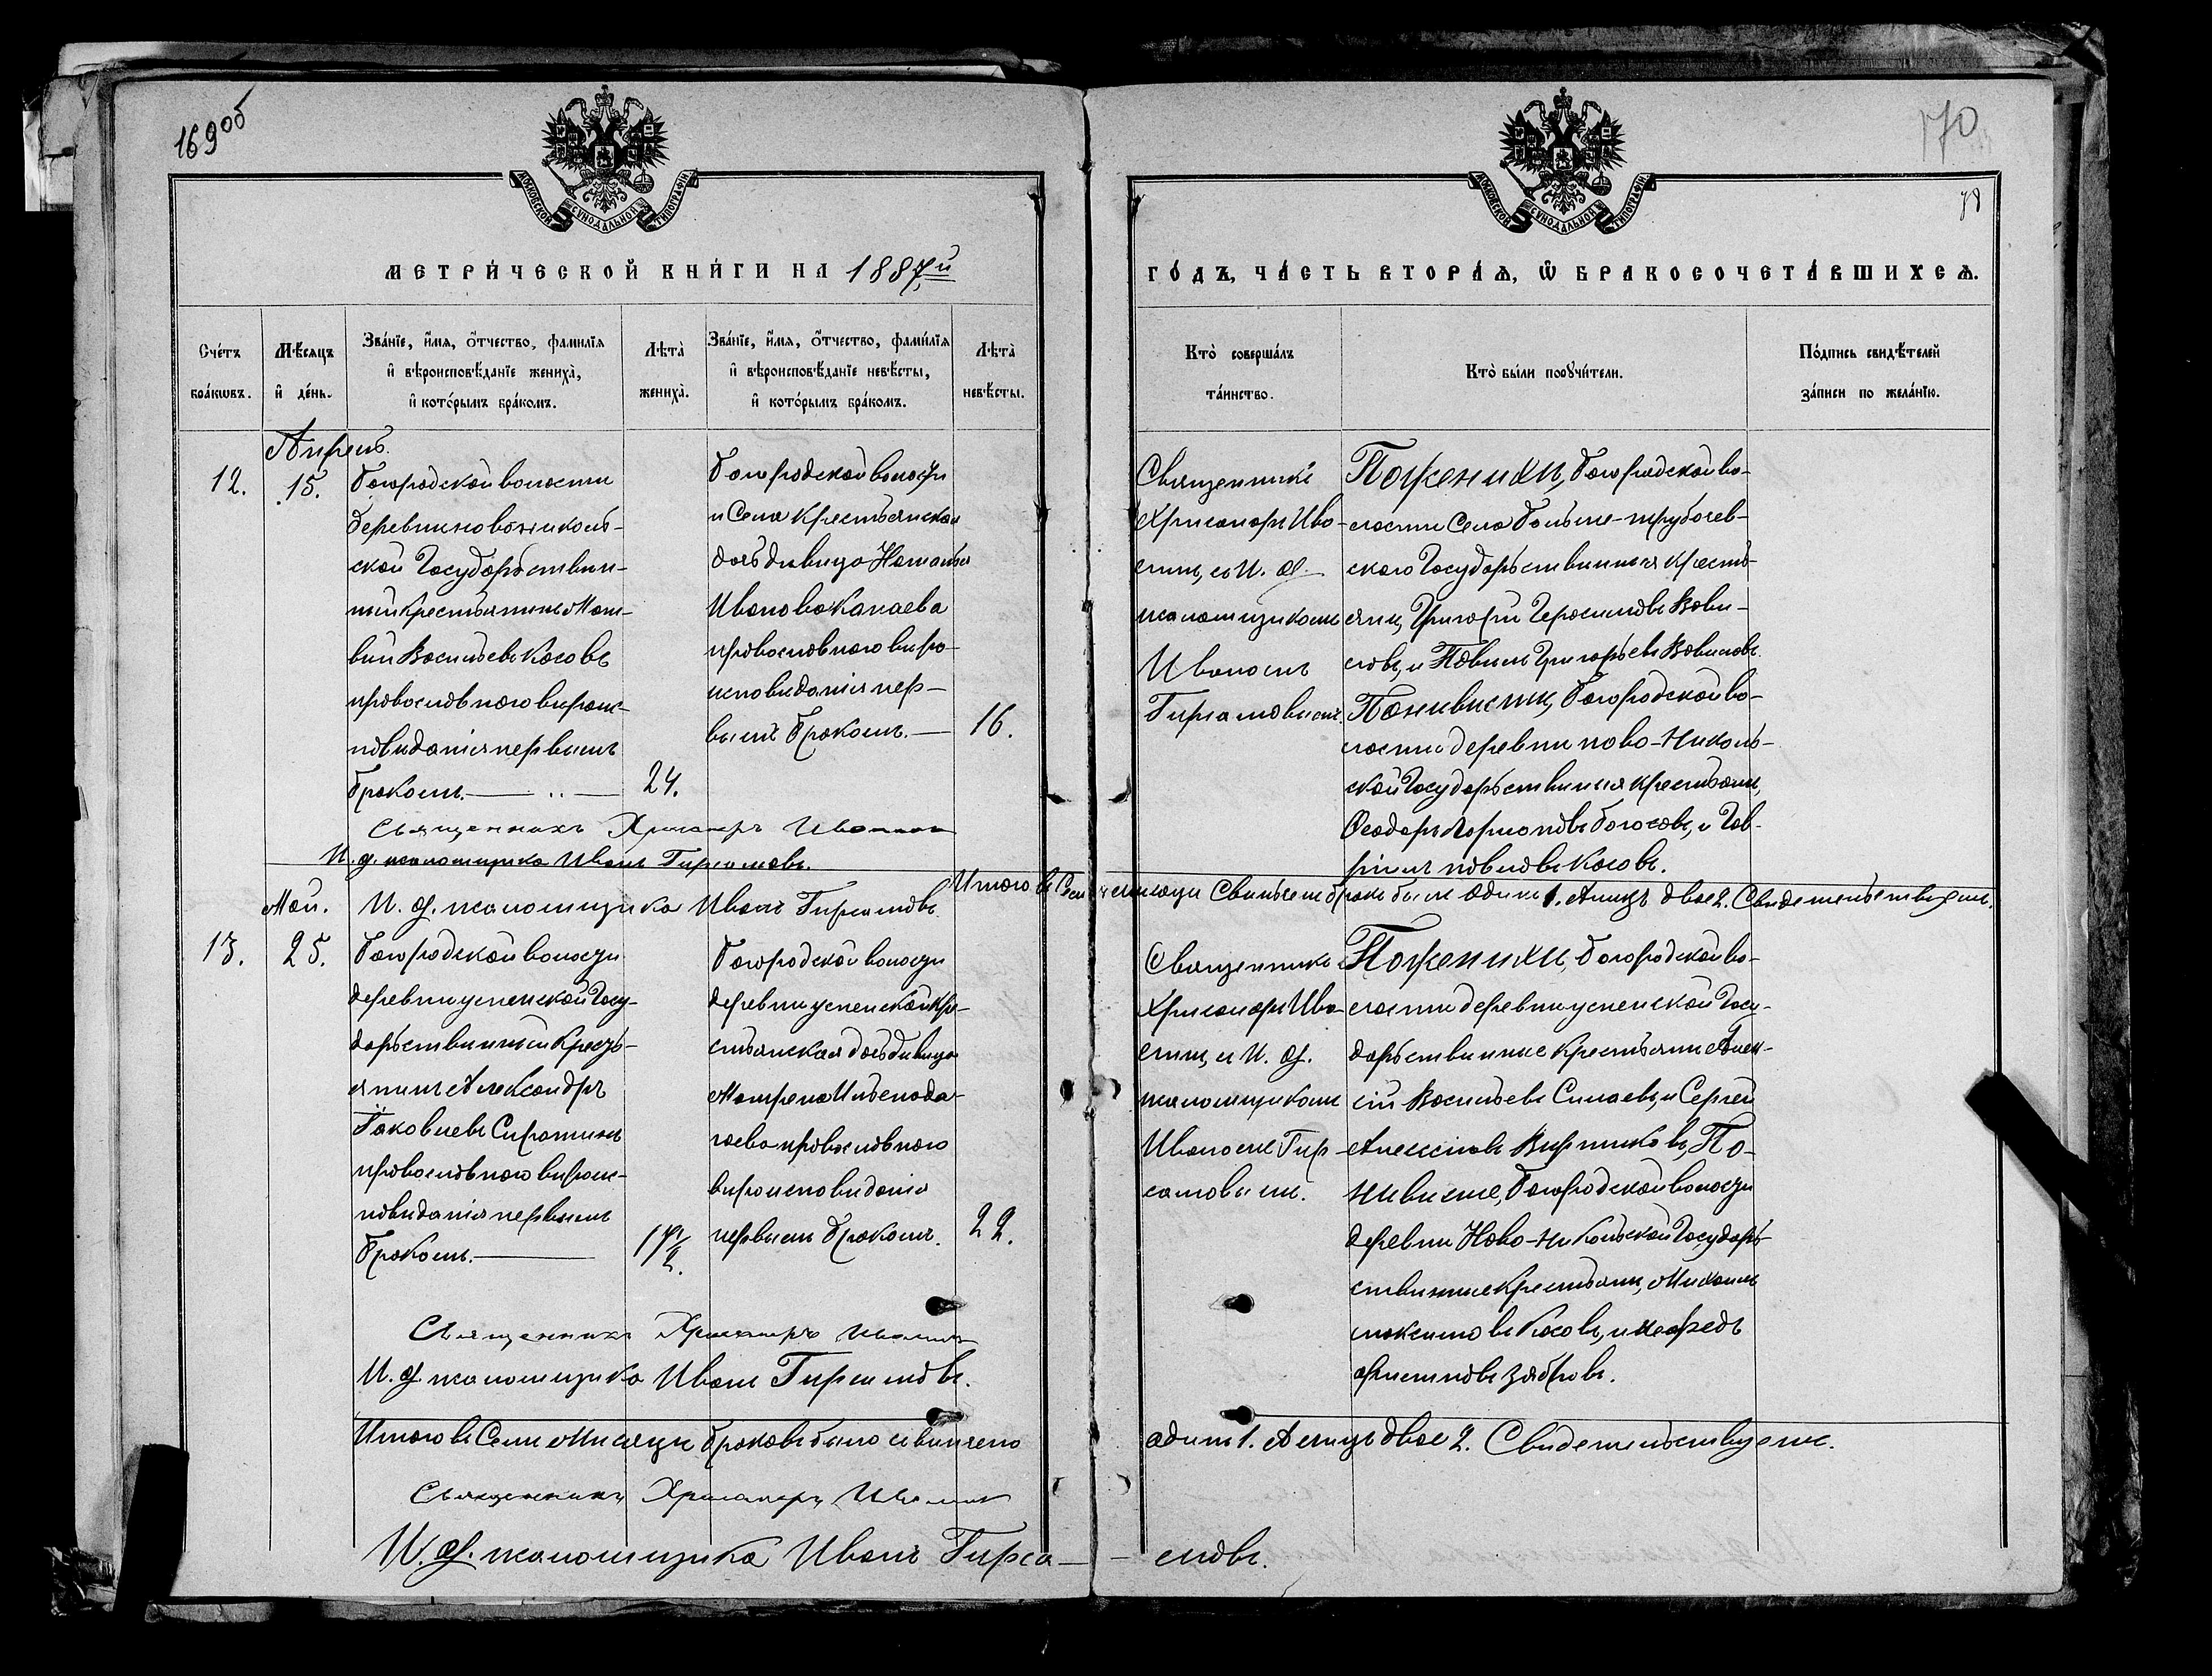 169об
170
78
МОСКОВСКОЙ СѴНОДАЛЬНОЙ ТИПОГРАФІИ
МОСКОВСКОЙ СѴНОДАЛЬНОЙ ТИПОГРАФІИ
МЕТРИ́ЧЕСКОЙ КНИ́ГИ НА 1887й
ГО́ДЪ, ЧА́СТЬ ВТОРА́Ѧ, Ѽ БРАКОСОЧЕТА́ВШИХСѦ.
Сче́тъ бра́кѡвъ.
Мѣ́сяцъ и҆ де́нь.
Зва́нїе, и҆́мя, ѻ҆́тчество, фами́лїя
и҆ вѣроисповѣ́данїе жениха̀,
и҆ кото́рымъ бра́комъ.
Лѣта̀ жениха̀.
Зва́нїе, и҆́мя, ѻ҆́тчество, фами́лїя
и҆ вѣроисповѣ́данїе невѣ́сты,
и҆ кото́рымъ бра́комъ.
Лѣта̀ невѣ́сты.
Кто̀ соверша́лъ
та́инство.
Кто̀ бы́ли порꙋчи́тели.
По́дпись свидѣ́телей
за́писи по жела́нїю.
Апрель.
12.
15.
Богородской волости
деревни новоникол-
ской Государствен-
ный крестьянинъ Мат-
вей Васильевъ Косовъ
православнаго вероис-
поведания первымъ
бракомъ.
24.
Богородской волости
и Села крестьянская
дочь девица Наталья
Иванова Канаева
православнаго веро-
исповедания пер-
вымъ бракомъ.
16.
Священникъ
Хрисанфъ Ива-
съ И. д.
псаломщикомъ
Иваномъ
Гирсамовымъ.
По женихи, Богородской во-
лости Села Больше-трубачев-
скаго Государственныя кресть-
яни, Григорий Герасимовъ Вави-
ловъ, и Павелъ Григорьевъ Вавиловъ.
По невести, Богородской во-
лости деревни ново-Николь-
ской Государственныя крестьяни,
Феодоръ и Гав-
рилъ Павловъ Косовъ.
Священникъ Хрисанфъ
И. д. псаломщика Иванъ Гирсамовъ.
Итого въ Сем месяци Свинчем бракъ былъ один 1. А лицъ двое 2. Свидетельствуемъ.
Май.
И. д. псаломщика Иванъ Гирсамовъ.
13.
25.
Богородской волости
деревни успенской Госу-
дарственный Кресть-
янинъ Александръ
Яковлевъ Сиротинъ
православнаго вероис-
поведания первымъ
бракомъ.
17 1/2.
Богородской волости
деревни успенской Кре-
стьянская дочь девица
Матрена
православнаго
вероисповедания
первымъ бракомъ.
22.
Священникъ
Хрисанфъ Ива-
и И. д.
псаломщикомъ
Иваномъ Гир-
самовымъ.
По женихи, Богородской во-
лости деревни успенской Госу-
дарственные крестьяни Алек-
сий Васильевъ Силаевъ, и Сергей
Алексиевъ По
невисте, Богородской волости
деревни Ново-Никольской Государ-
ственные крестьяни, Михаилъ
Максимовъ Косовъ, и
Священникъ Хрисанфъ
И. д. псаломщика Иванъ Гирсамовъ.
Итого въ Сем Месяци браковъ было свинчено
адинъ 1. А лицъ двое 2. Свидетельствуемъ.
Священникъ Хрисанфъ
И. д. псаломщика Иванъ Гирса-
-мовъ.